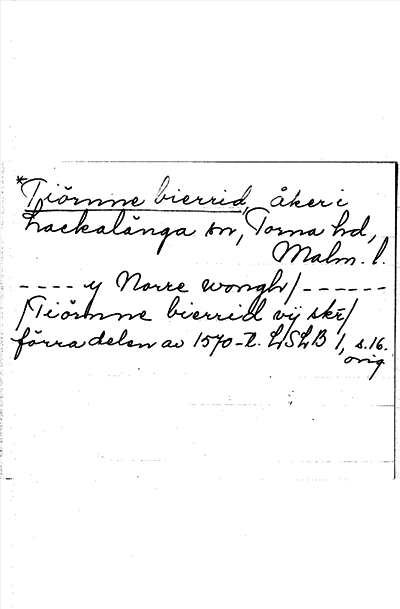 *Tiörnne bierrid, åker i
Lackalånga sn, Torna hd,
Malm. l.
---- y Norre wongh/ ------
/Tiörnne bierrid vÿ skr/
förra delen av 1570-t. LSLB 1, s. 16.
orig